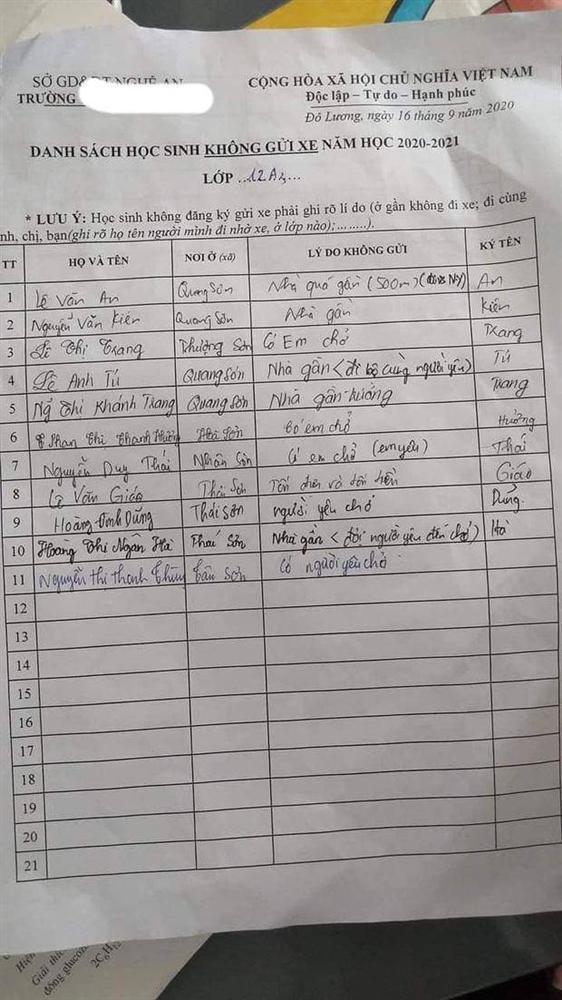 SỞ GD&ĐT NGHỆ AN
CỘNG HÒA XÃ HỘI CHỦ NGHĨA VIỆT NAM
TRƯỜNG
Độc lập – Tự do – Hạnh phúc
Đô Lương, ngày 16 tháng 9 năm 2020
DANH SÁCH HỌC SINH KHÔNG GỬI XE NĂM HỌC 2020-2021
LỚP ...12A3...
* LƯU Ý: Học sinh không đăng ký gửi xe phải ghi rõ lí do (ở gần không đi xe; đi cùng
nh, chị, bạn(ghi rõ họ tên người mình đi nhờ xe, ở lớp nào);........).
TT HỌ VÀ TÊN NƠI Ở (xã) LÝ DO KHÔNG GỬI KÝ TÊN
1 Lê Văn An Quang Sơn Nhà quá gần (500m) An
2 Nguyễn Văn Kiên Quang Sơn Nhà gần Kiên
3 Thị Trang Thượng Sơn Có Em chở Trang
4 Lê Anh Tú Quang Sơn Nhà gần (đi bộ cùng người yêu) Tú
5 Thị Khánh Trang Quang Sơn Nhà gần Trang
6 Phan Thị Thanh Sơn Có em chở Hường
7 Nguyễn Duy Thái Nhân Sơn Có em chở (em yêu) Thái
8 Lê Văn Giáo Thái Sơn Tốn và tốn tiền Giáo
9 Hoàng Đình Dũng Thái Sơn người yêu chở Dũng
10 Hoàng Thị Ngân Hà Thái Sơn Nhà gần (đợi người yêu đến chở) Hà
11 Nguyễn thị thanh Tân Sơn Có người yêu chở
12
13
14
15
16
17
18
19
20
21
Giải thi
đông glucoz